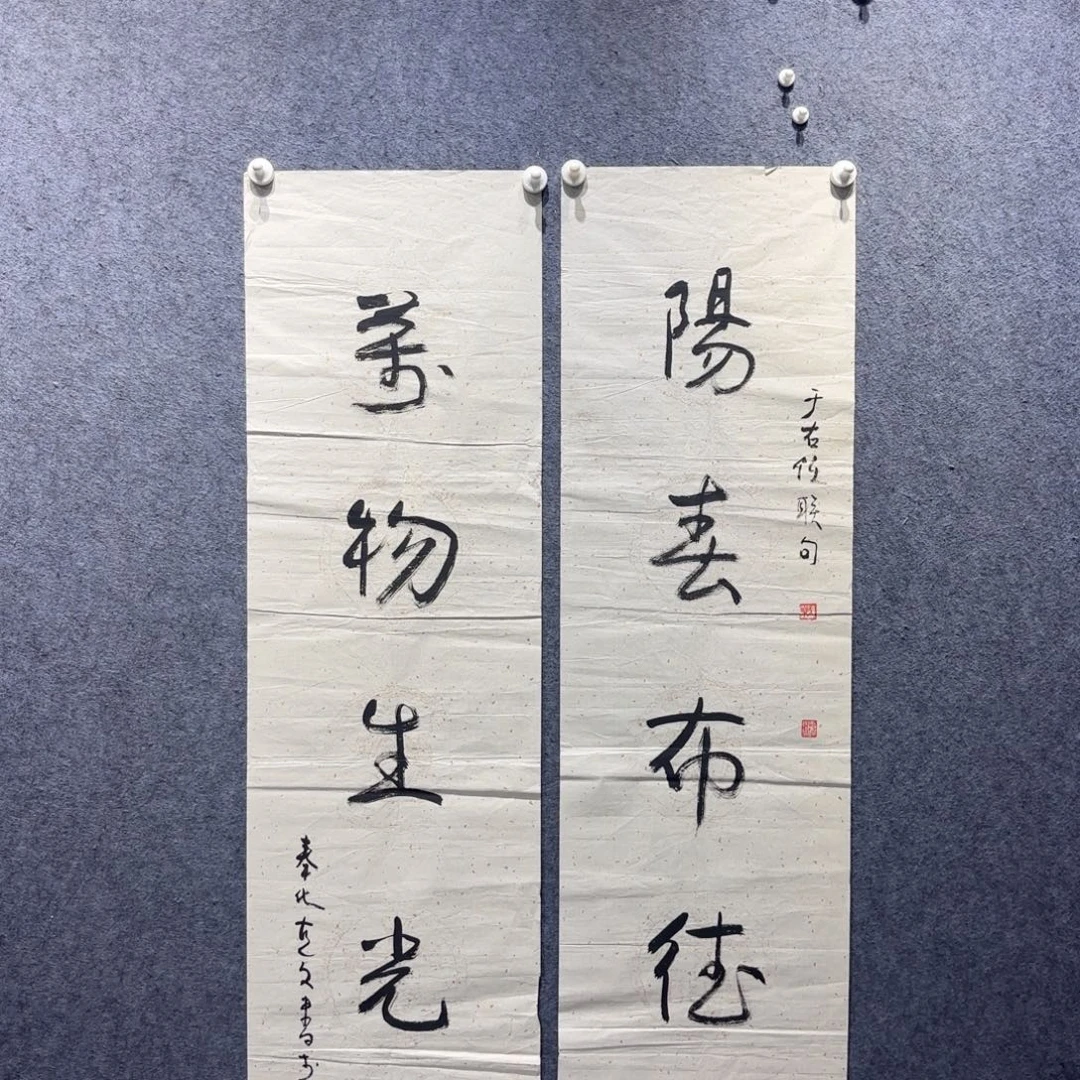 陽春布德
于右任聯句
萬物生光
奉化
書於